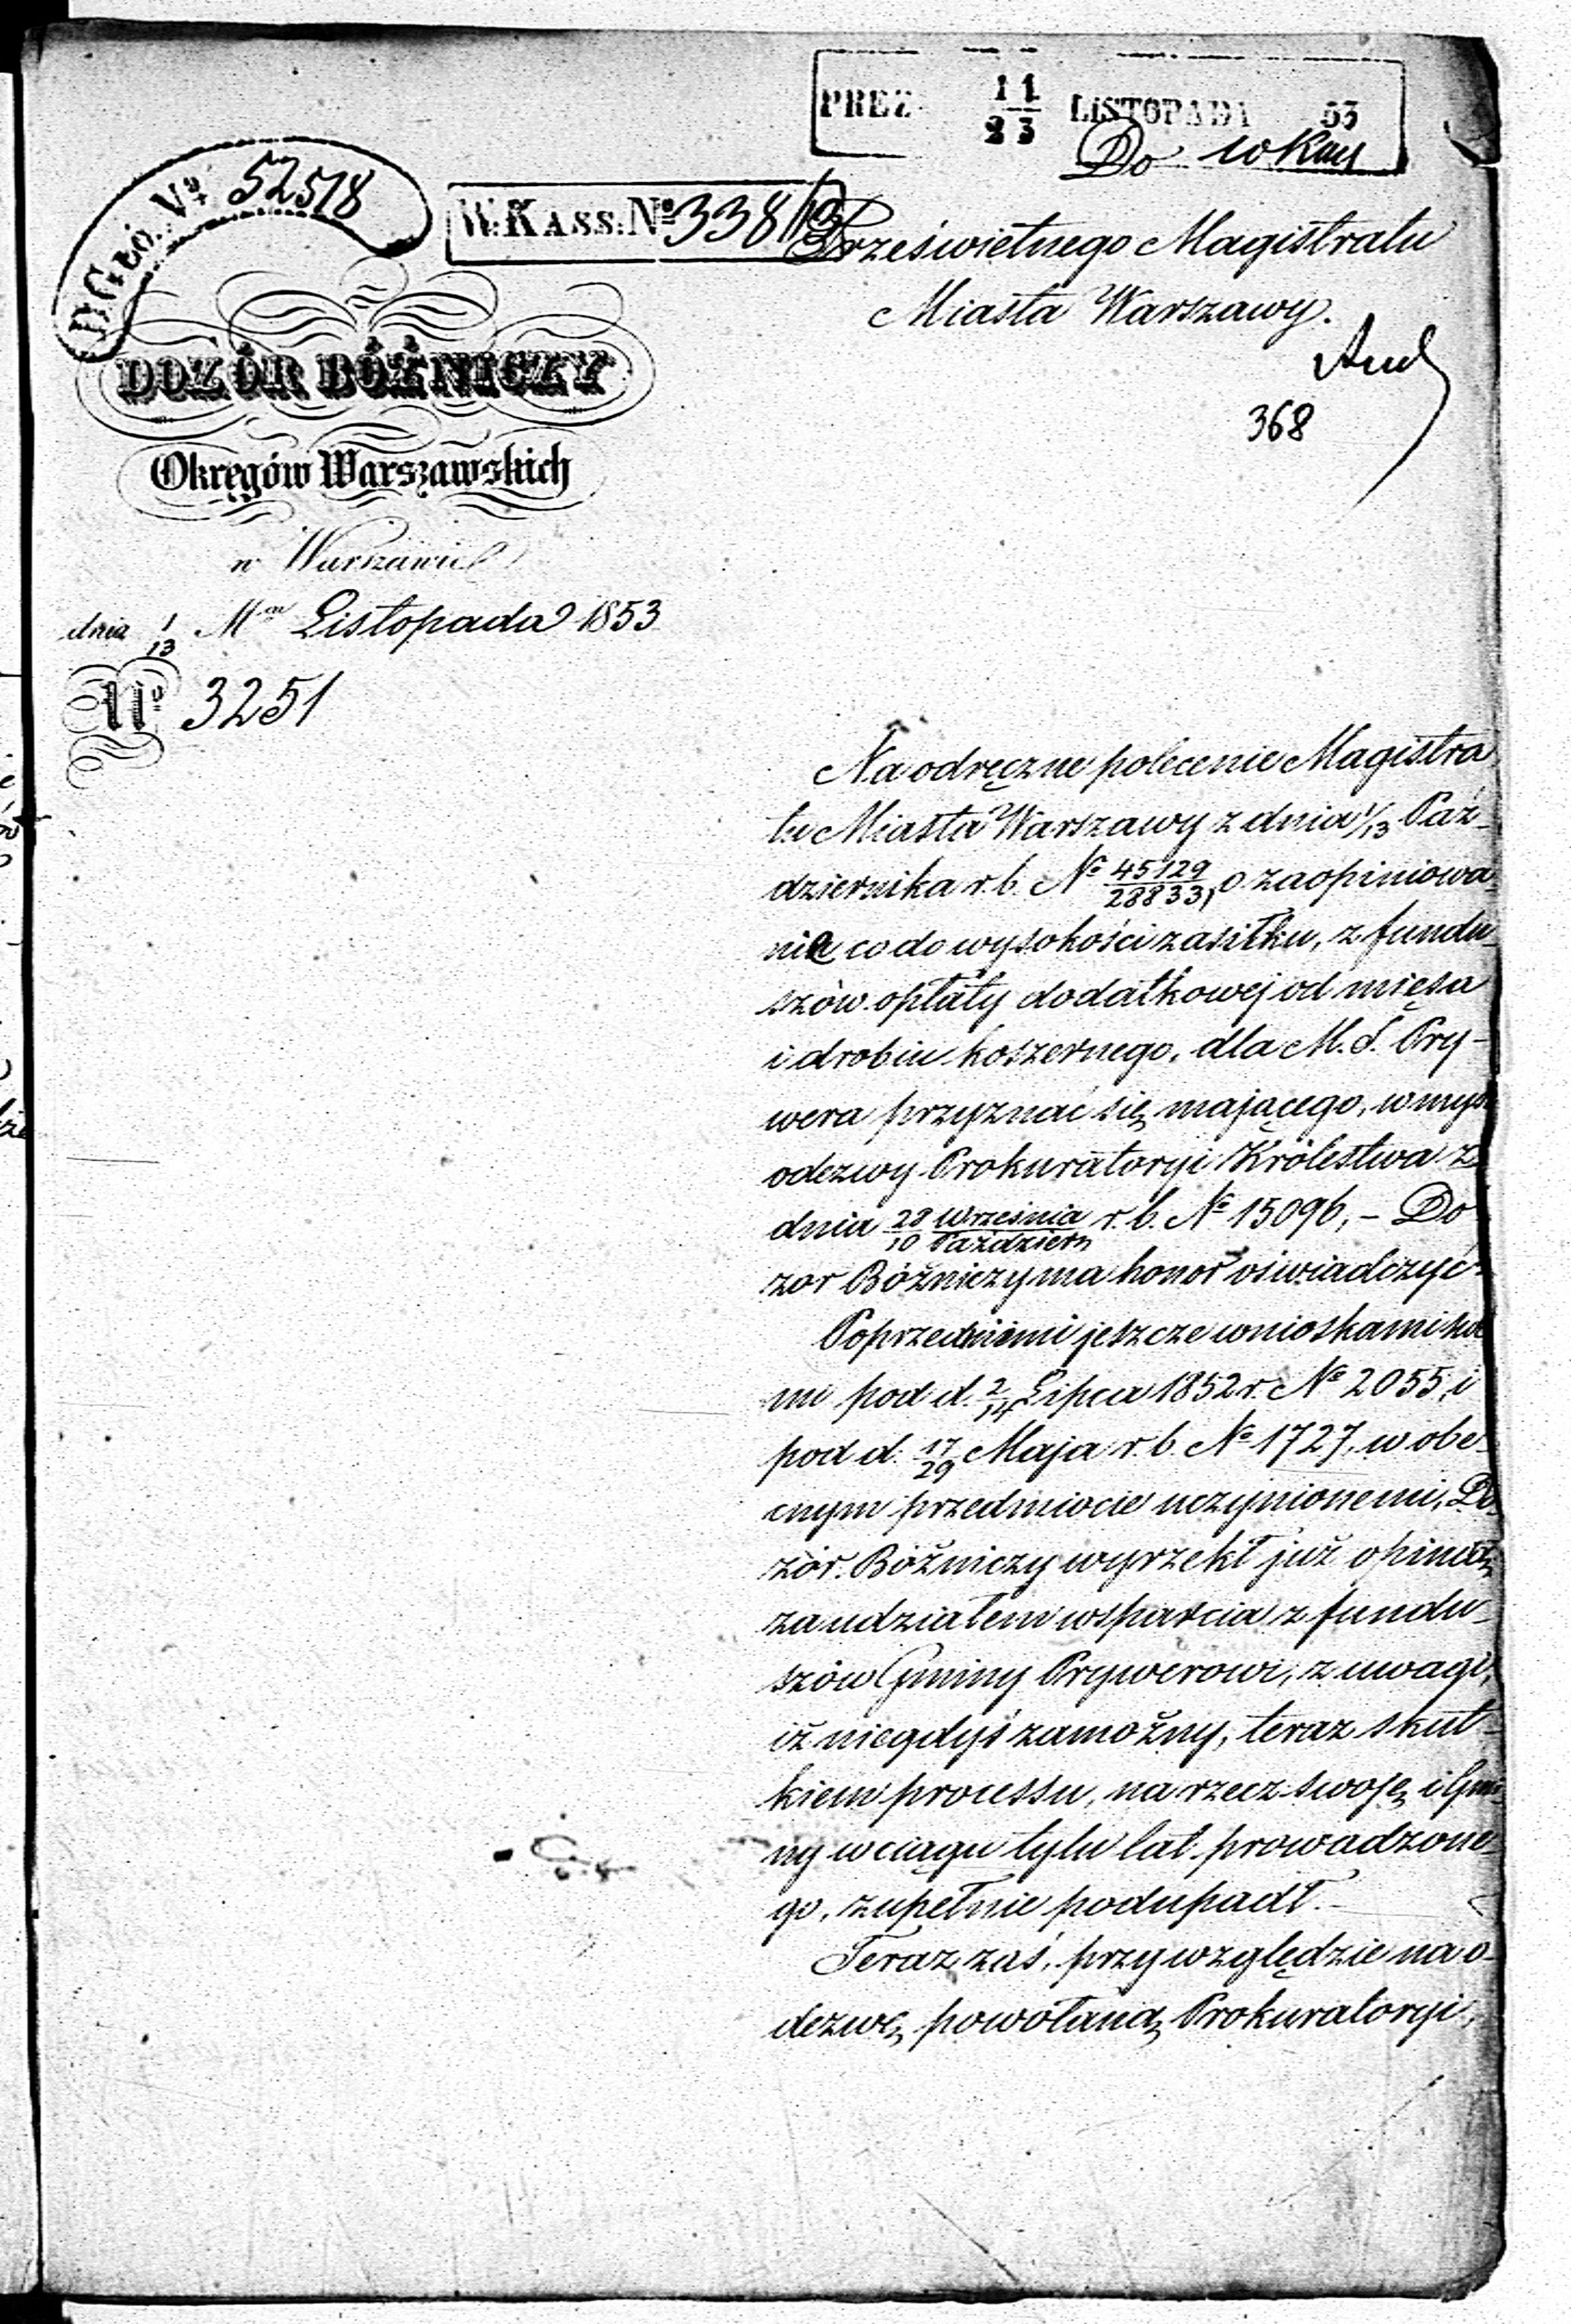 PREZ 11/23 LISTOPADA 53
Do w Kass
DGłó. No 52518
W. KASS: No 3381
Prześwietnego Magistratu
Miasta Warszawy.
368
DOZÓR BÓŻNICZY
Okręgów Warszawskich
w Warszawie
dnia 1/13 Mca Listopada 1853
No 3251
Na odręczne polecenie Magistra
tu Miasta Warszawy z dnia 1/13 Paź-
dziernika r. b. No 45129/28833, o zaopiniowa-
nie co do wysokości zasiłku, z fundu-
szów opłaty dodatkowej od mięsa
i drobiu koszernego, dla M. S. Pry-
wera przyznać się mającego, w myśl
odezwy Prokuratoryi Królestwa z
dnia 28 Września/10 Październ r. b. No 15096, – Do
zor Bóżniczy ma honor oświadczyć
Poprzedniemi jeszcze wnioskami swe
mi pod d. 2/14 Lipca 1852 r. No 2055, i
pod d. 17/29 Maja r. b. No 1727, w obe-
cnym przedmiocie uczynionemi, Do
zór Bóżniczy wyrzekł już opinią
za udziałem wsparcia z fundu-
szów Gminy Prywerowi, z uwagi,
iż niegdyś zamożny, teraz skut-
kiem processu, na rzecz swoję i Gmi-
ny w ciągu tylu lat prowadzone-
go, zupełnie podupadł. –
Teraz zaś, przy względzie na o-
dezwę powołaną Prokuratoryi,